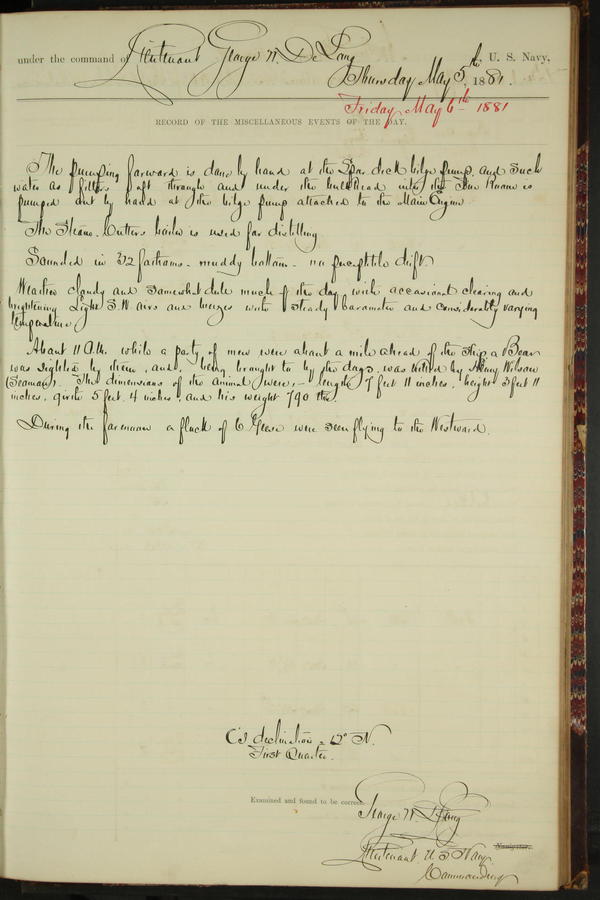 under the command of Lieutenant George W. De Long, U. S. Navy,
Thursday May 5th, 1881.
Friday May 6th 1881
RECORD OF THE MISCELLANEOUS EVENTS OF THE DAY.
The pumping forward is done by hand at the Spar deck bilge pump, and such
water as filters aft through and under the bulkhead into the Fire Room is
pumped out by hand at the bilge pump attached to the Main Engine
The Steam Cutters boiler is used for distilling.
Sounded in 32 fathoms - muddy bottom - no perceptible drift.
Weather cloudy and somewhat dull much of the day with occasional clearing and
brightening. Light S.W airs and breezes with steady barometer and considerably varying
temperature
About 11 A.M. while a party of men were about a mile ahead of the Ship a Bear
was sighted by them, and, being brought to by the dogs, was killed by Henry Wilson
(Seaman). The dimensions of the animal were:- length 7 feet 11 inches, height 3 feet 11
inches, girth 5 feet, 4 inches, and his weight 790 lbs.
During the forenoon a flock of 6 Geese were seen flying to the Westward.
declination 12° N.
First Quarter.
Examined and found to be correct.
George W. De Long
Lieutenant U. S. Navy, Navigator.
Commanding